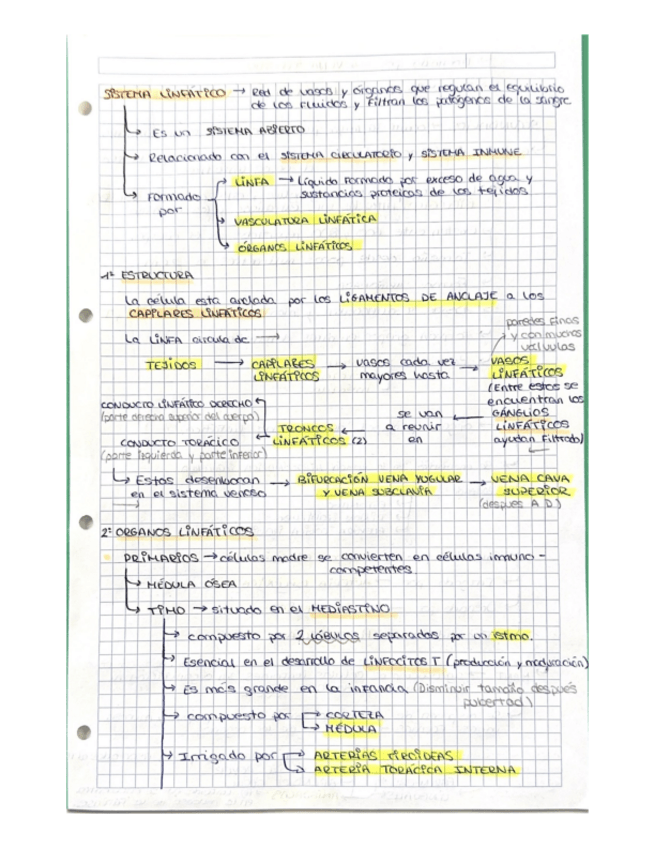 SISTEMA LINFÁTICO → Red de vasos y órganos que regulan el equilibrio
de los fluidos y filtran los patógenos de la sangre
→ Es un SISTEMA ABIERTO
→ Relacionado con el SISTEMA CIRCULATORIO y SISTEMA INMUNE
→ Formado por
→ LINFA → Líquido formado por exceso de agua y
sustancias proteicas de los tejidos
→ VASCULATURA LINFÁTICA
→ ÓRGANOS LINFÁTICOS
1º ESTRUCTURA
La célula esta anclada por los LIGAMENTOS DE ANCLAJE a los
CAPILARES LINFÁTICOS
La LINFA circula de →
paredes finas
y con muchas
válvulas
TEJIDOS → CAPILARES LINFÁTICOS → vasos cada vez mayores hasta → VASOS LINFÁTICOS
(Entre estos se
encuentran los
GÁNGLIOS
LINFÁTICOS
ayudan filtrado)
← se van a reunir en
← TRONCOS LINFÁTICOS (2)
CONDUCTO LINFÁTICO DERECHO
(parte derecha superior del cuerpo)
CONDUCTO TORÁCICO
(parte izquierda y parte inferior)
→ Estos desembocan en el sistema venoso → BIFURCACIÓN VENA YUGULAR Y VENA SUBCLAVIA → VENA CAVA SUPERIOR
(después A.D)
2º ORGANOS LINFÁTICOS
PRIMARIOS → células madre se convierten en células inmuno-
competentes
→ MÉDULA ÓSEA
→ TIMO → situado en el MEDIASTINO
→ compuesto por 2 lóbulos separados por un istmo.
→ Esencial en el desarrollo de LINFOCITOS T (producción y maduración)
→ Es más grande en la infancia (Disminuir tamaño después
pubertad)
→ compuesto por → CORTEZA
→ MÉDULA
→ Irrigado por → ARTERIAS TIROIDEAS
→ ARTERIA TORÁCICA INTERNA